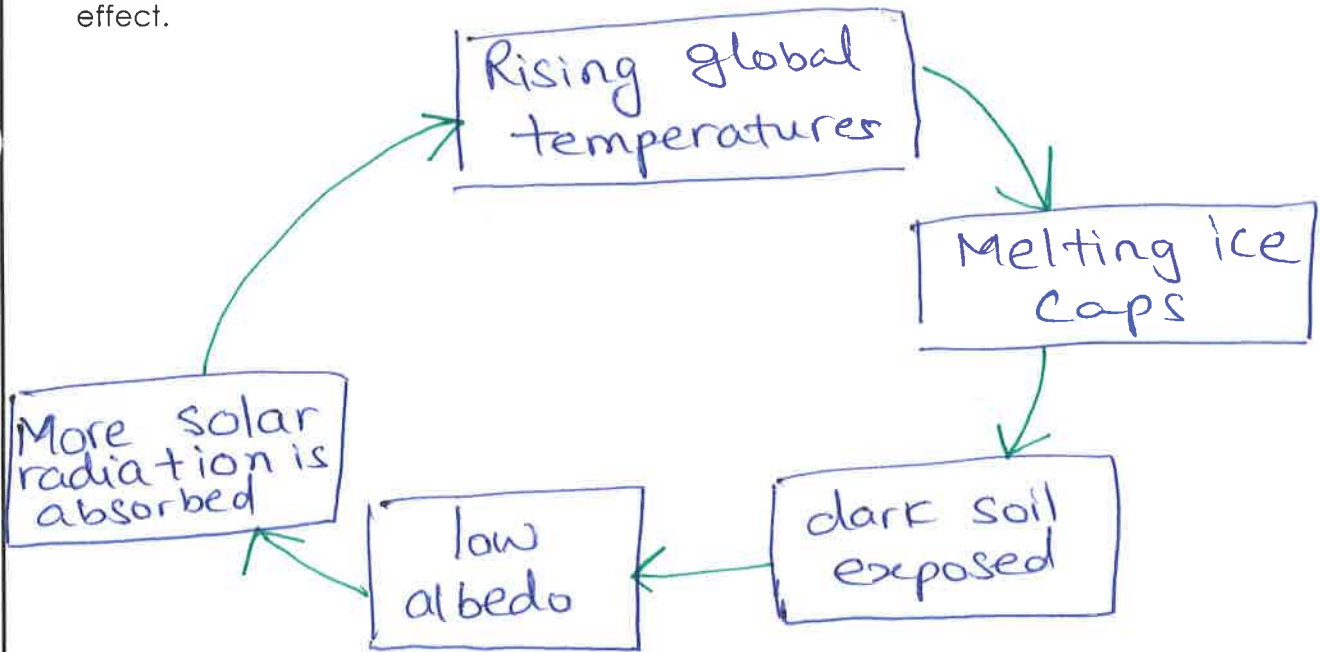 effect.
Rising global
temperatures
Melting ice
caps
dark soil
exposed
low
albedo
More solar
radiation is
absorbed